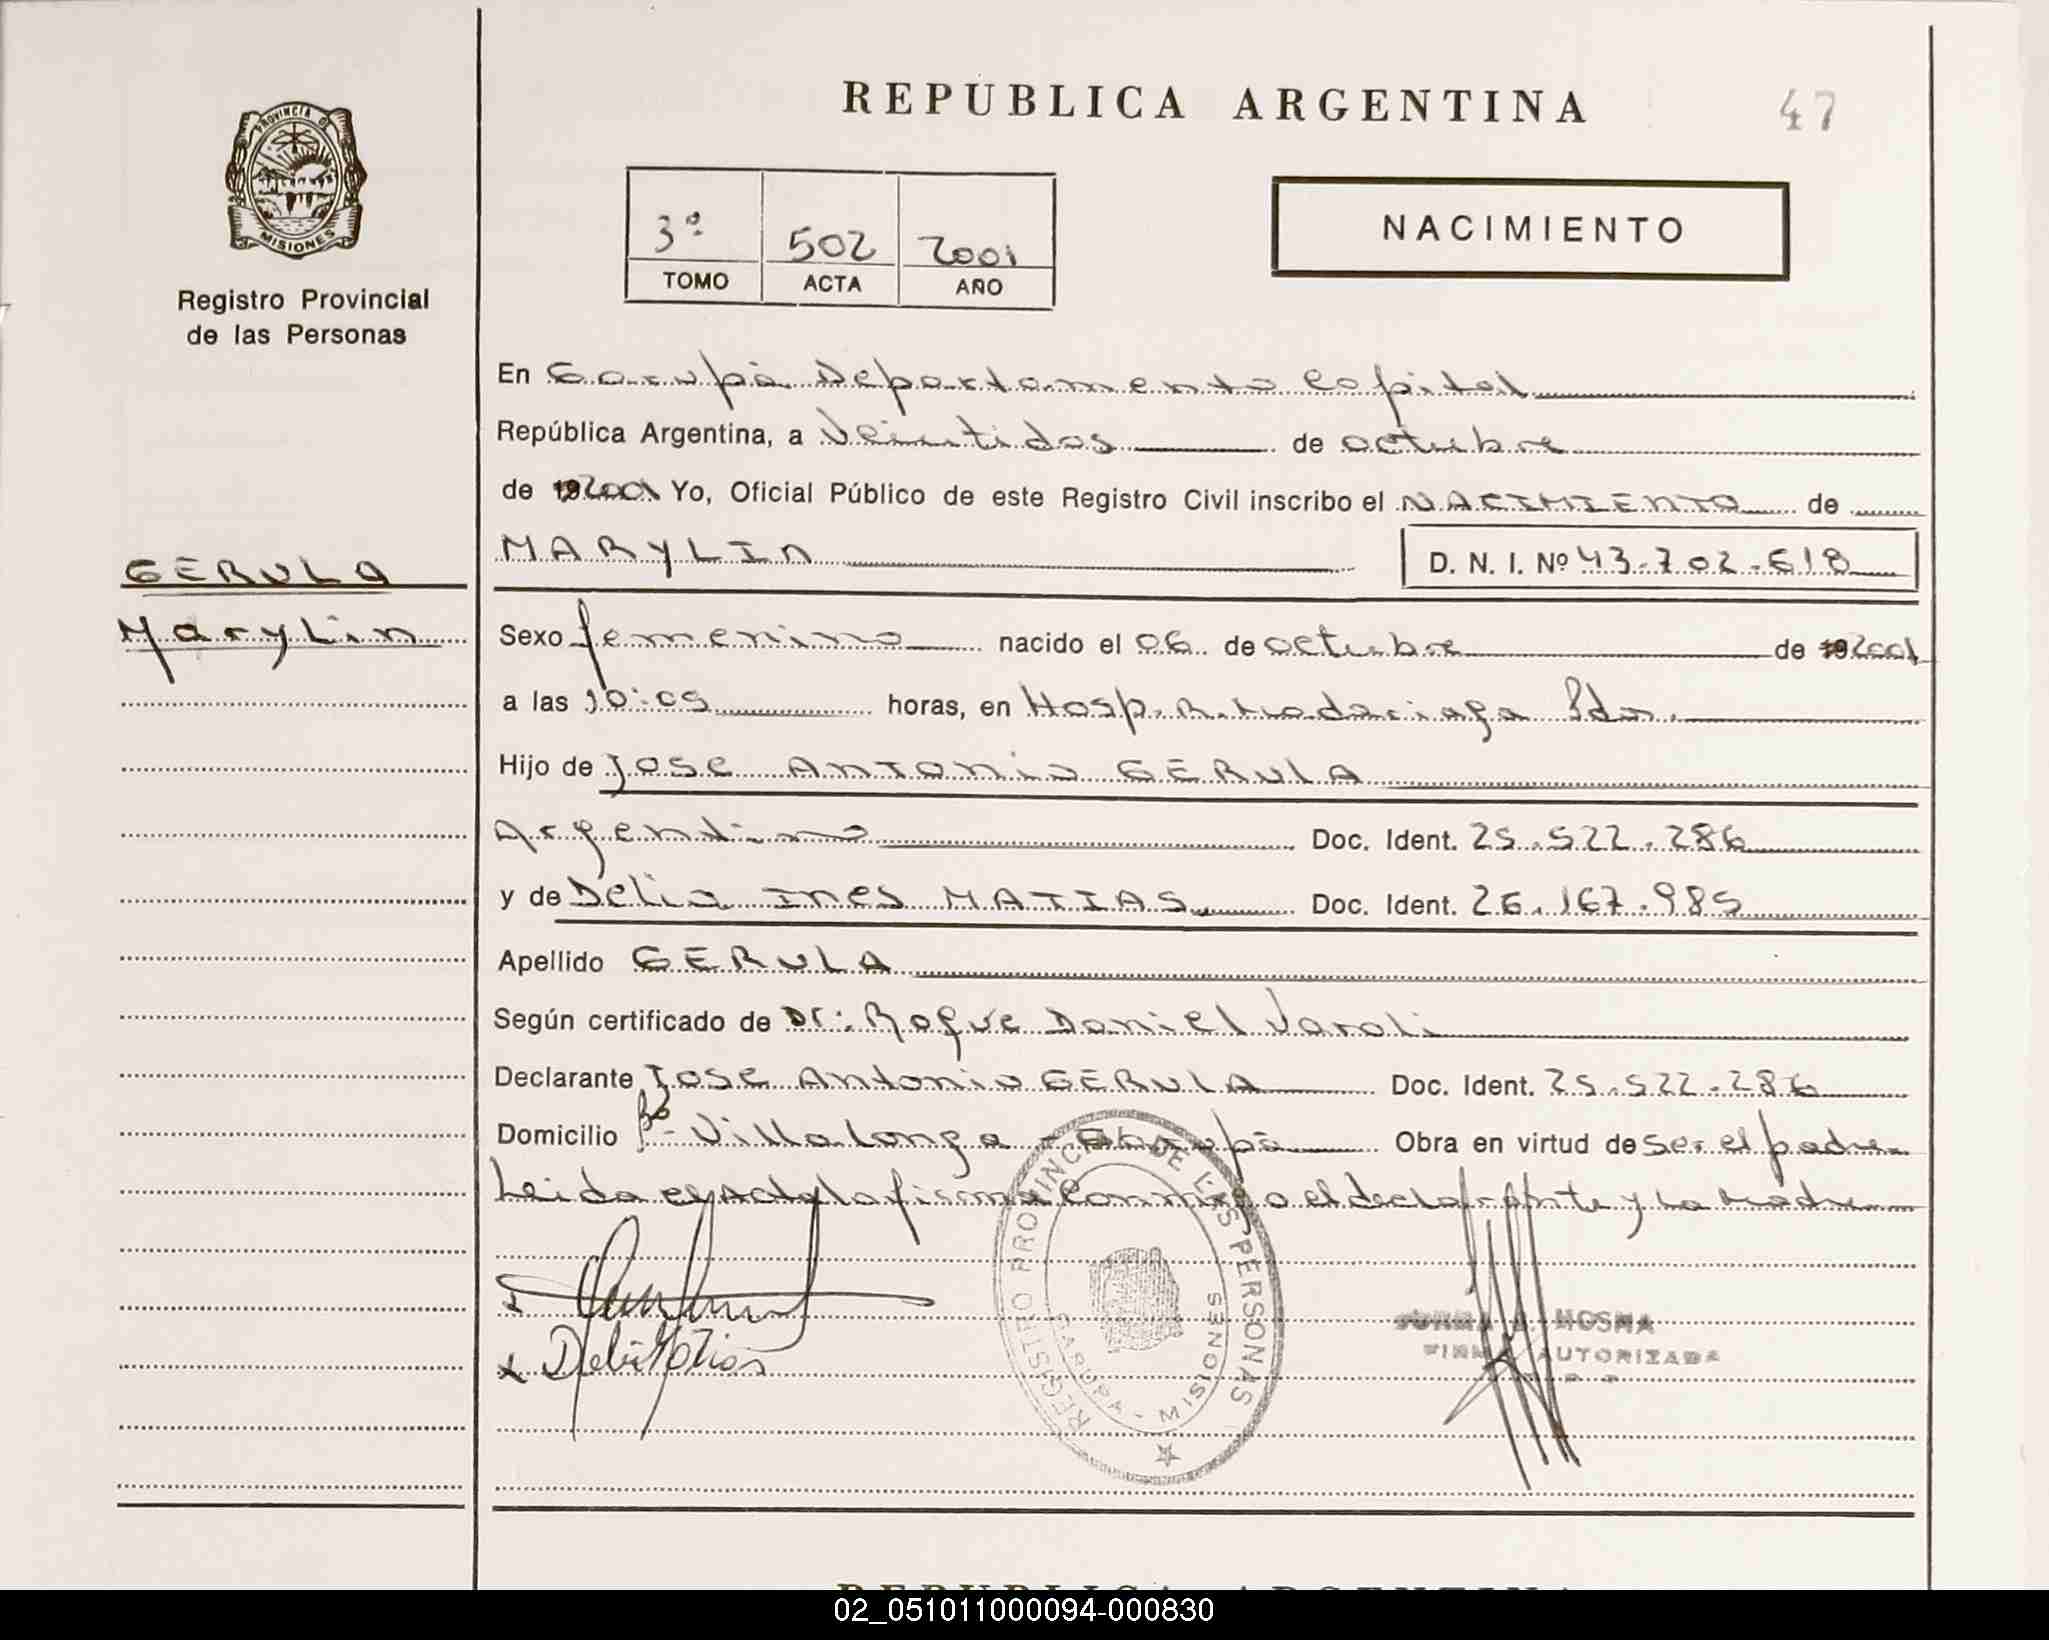 REPUBLICA ARGENTINA
47
PROVINCIA DE
MISIONES
Registro Provincial
de las Personas
3º 502 2001
TOMO ACTA AÑO
NACIMIENTO
En Garupá Departamento Capital
República Argentina, a Veintidos de octubre
de 2001 Yo, Oficial Público de este Registro Civil inscribo el NACIMIENTO de
MARYLIN D. N. I. Nº 43.702.618
GERULA
Marylin
Sexo femenino nacido el 06 de octubre de 2001
a las 10:05 horas, en Hosp. R. Madariaga Pdas.
Hijo de Jose ANTONIO GERULA
Argentino Doc. Ident. 25.522.286
y de Delia INES MATIAS Doc. Ident. 26.167.985
Apellido GERULA
Según certificado de Dr: Roque Daniel Varoli
Declarante Jose Antonio GERULA Doc. Ident. 25.522.286
Domicilio Bº Villalonga - Garupá Obra en virtud de ser el padre
Leida el Acta la firma conmigo el declarante y la Madre
REGISTRO PROVINCIAL DE LAS PERSONAS
GARUPA - MISIONES
MOSMA
FIRMA AUTORIZADA
Delia Matias
REPUBLICA ARGENTINA
02_051011000094-000830